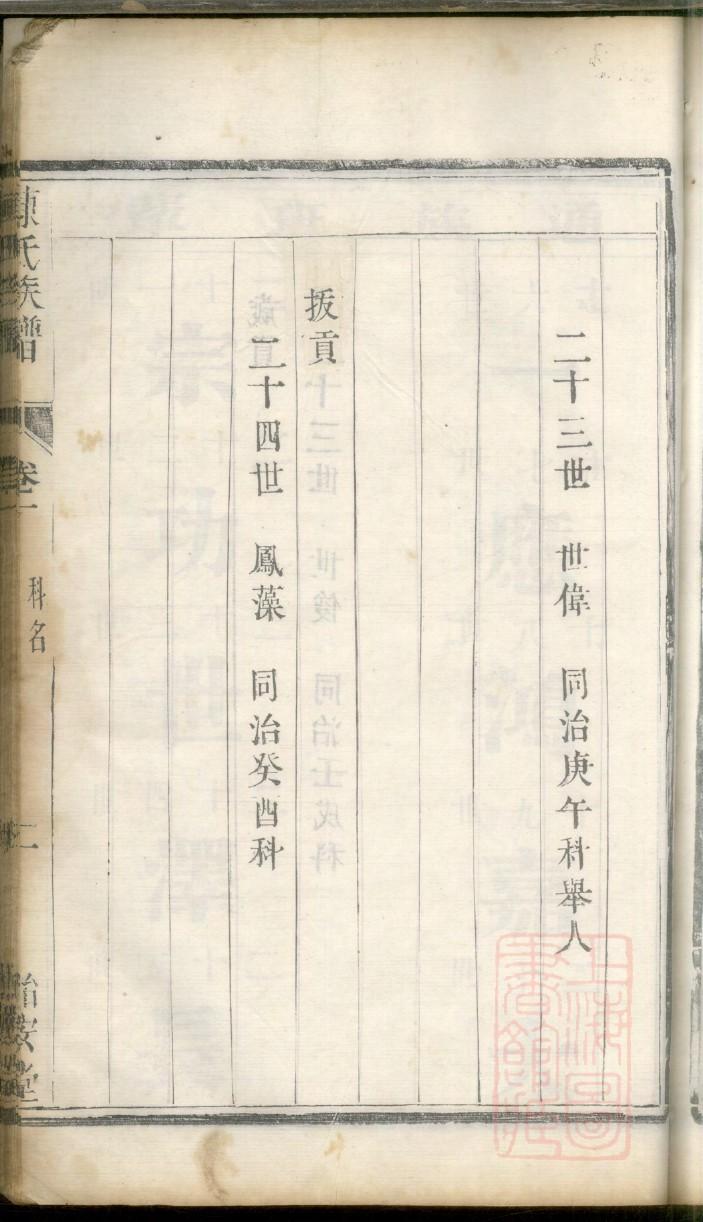 二十三世　世偉　同治庚午科舉人
拔貢
二十四世　鳳藻　同治癸酉科
陳氏族譜
卷一
科名
二
上海圖書館藏